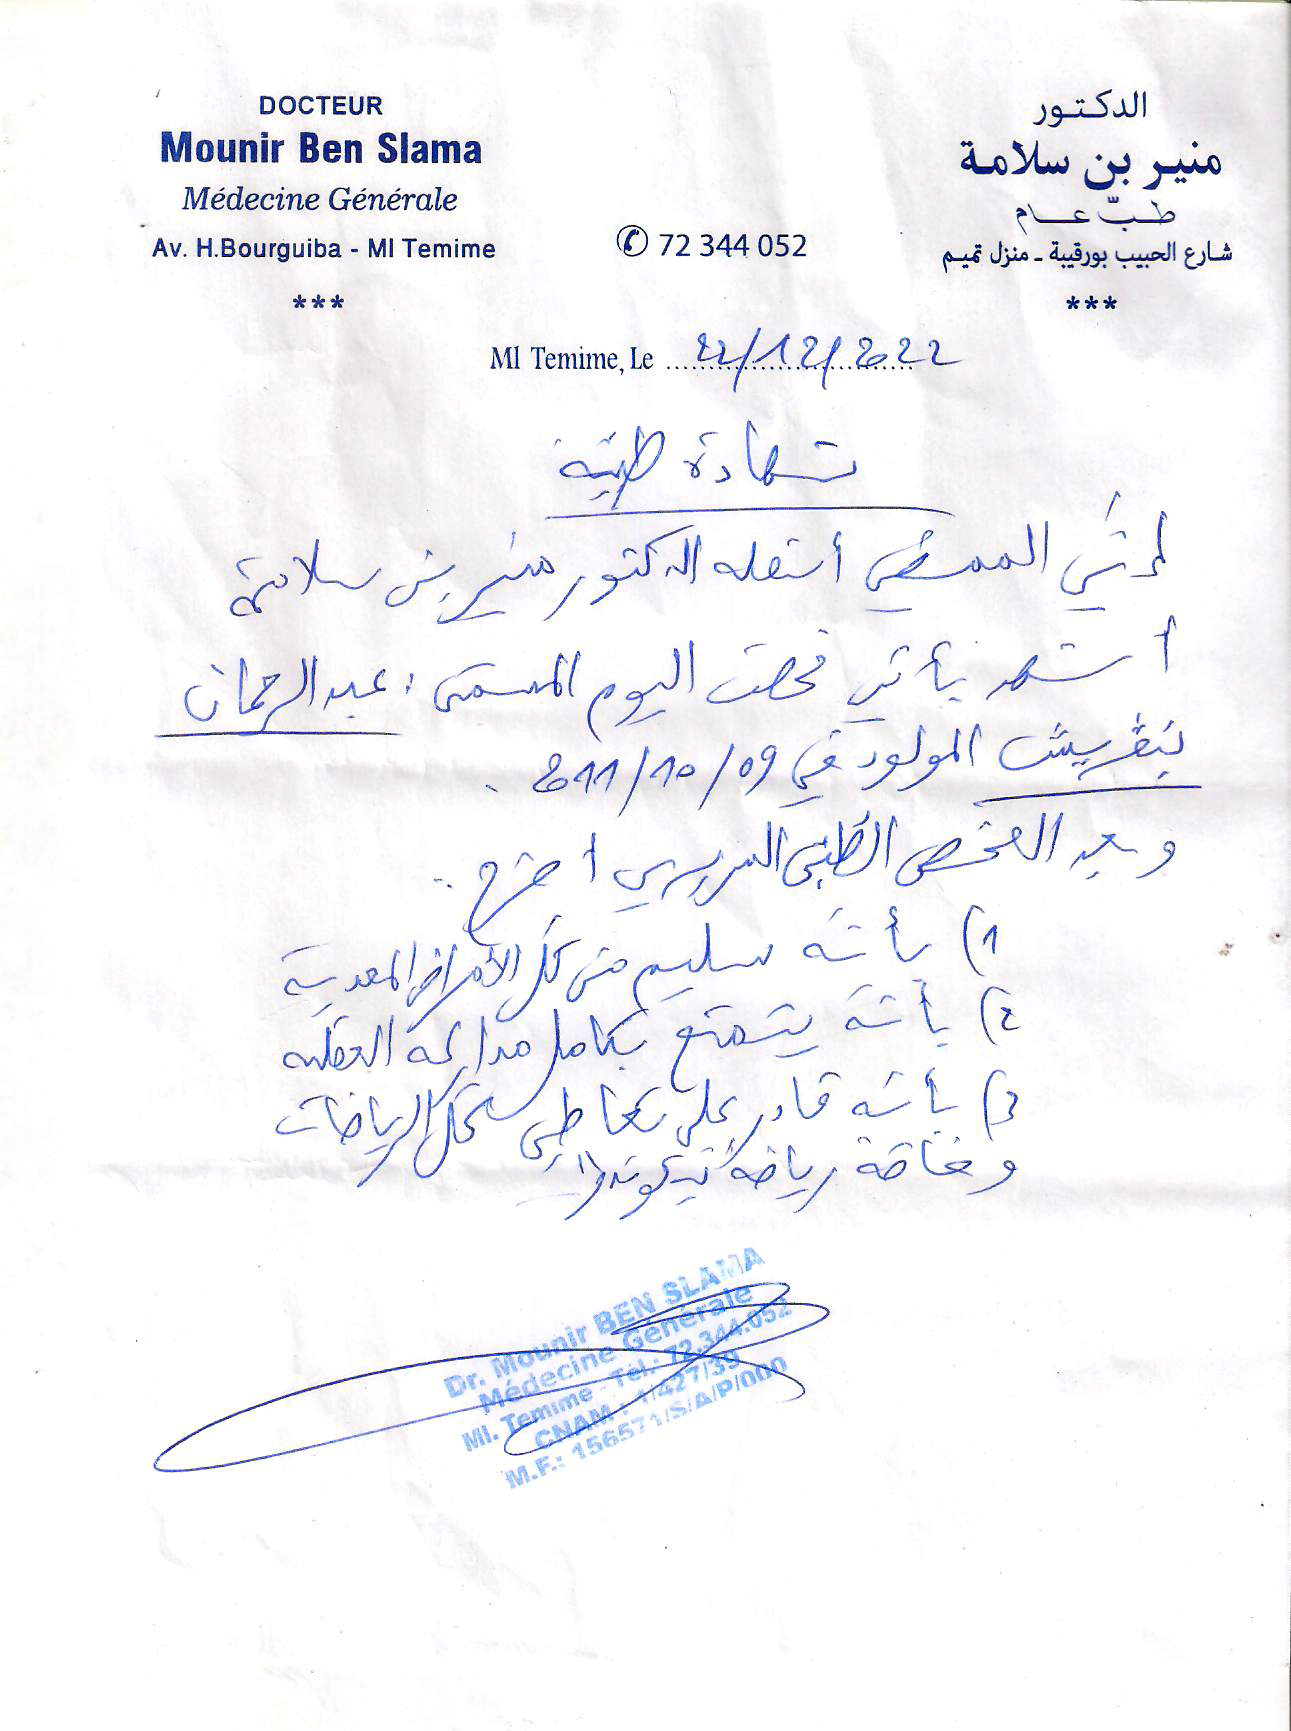 DOCTEUR
Mounir Ben Slama
Médecine Générale
Av. H.Bourguiba - Ml Temime
***
✆ 72 344 052
الدكتور
منير بن سلامة
طبّ عام
شارع الحبيب بورقيبة - منزل تميم
***
Ml Temime, Le 22/12/2022
شهادة طبية
إني الممضي أسفله الدكتور منير بن سلامة
أشهد بأني فحصت اليوم المسمى : عبد الرحمان
بنقريش المولود في 09/10/2011 .
و بعد الفحص الطبي السريري أصرح ..
1) بأنه سليم من كل الأمراض المعدية
2) بأنه يتمتع بكامل مداركه العقلية
3) بأنه قادر على تعاطي كل الرياضات
وخاصة رياضة تيكوندوا
Dr. Mounir BEN SLAMA
Médecine Générale
Ml. Temime - Tél.: 72.344.052
CNAM : 1/427/39
M.F.: 156571/S/A/P/000